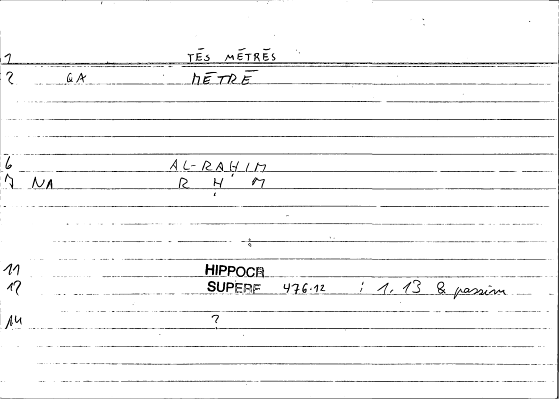 1 TĒS MĒTRĒS
2 GA MĒTRĒ
6 AL-RAḤIM
7 NA R Ḥ M
11 HIPPOCR
12 SUPERF 476.12 : 1. 13 & passim
14 ?